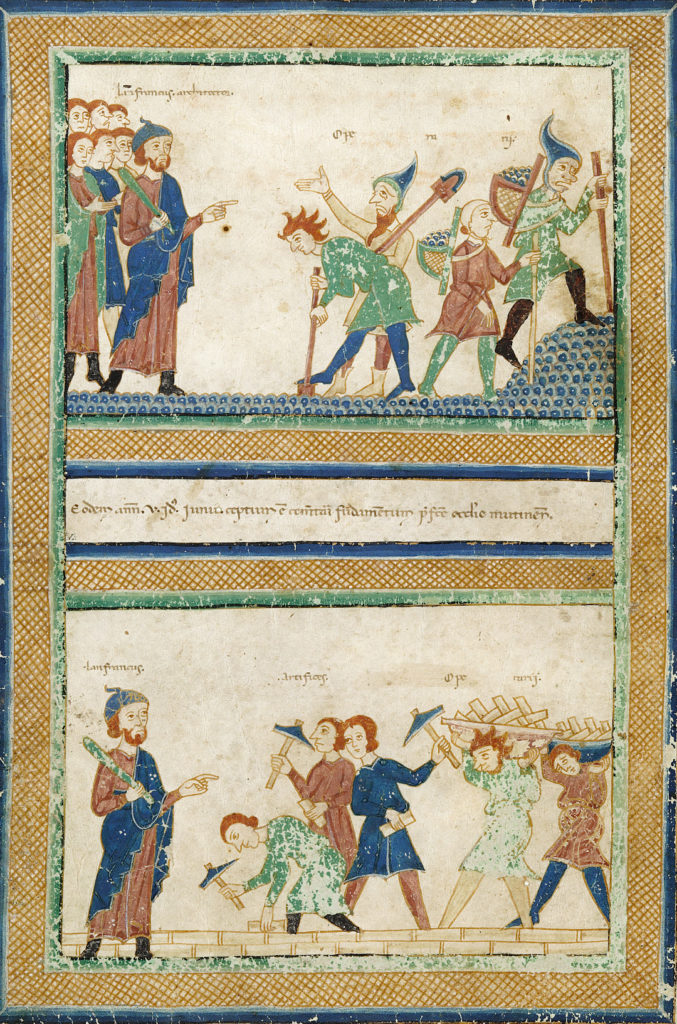 Lanfrancus. architector.
Ope ra rij.
Eodem ann̄. V. id̄. Iunii. ceptum ē cemtari fūdamentum p̄fate ecclīe mutinen̄.
Lanfrancus.
Artifices.
Ope rarij.